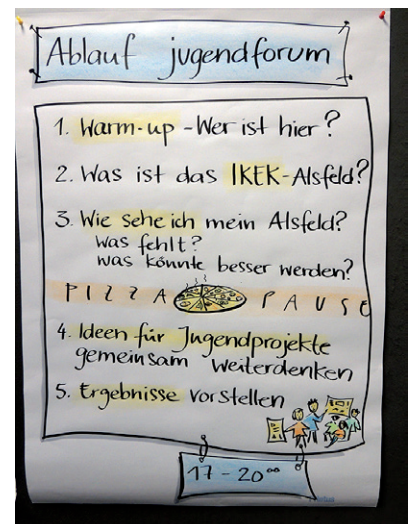 Ablauf jugendforum
1. Warm-up - Wer ist hier?
2. Was ist das IKEK-Alsfeld?
3. Wie sehe ich mein Alsfeld?
was fehlt?
was könnte besser werden?
PIZZA PAUSE
4. Ideen für Jugendprojekte
gemeinsam weiterdenken
5. Ergebnisse vorstellen
17 - 20°°